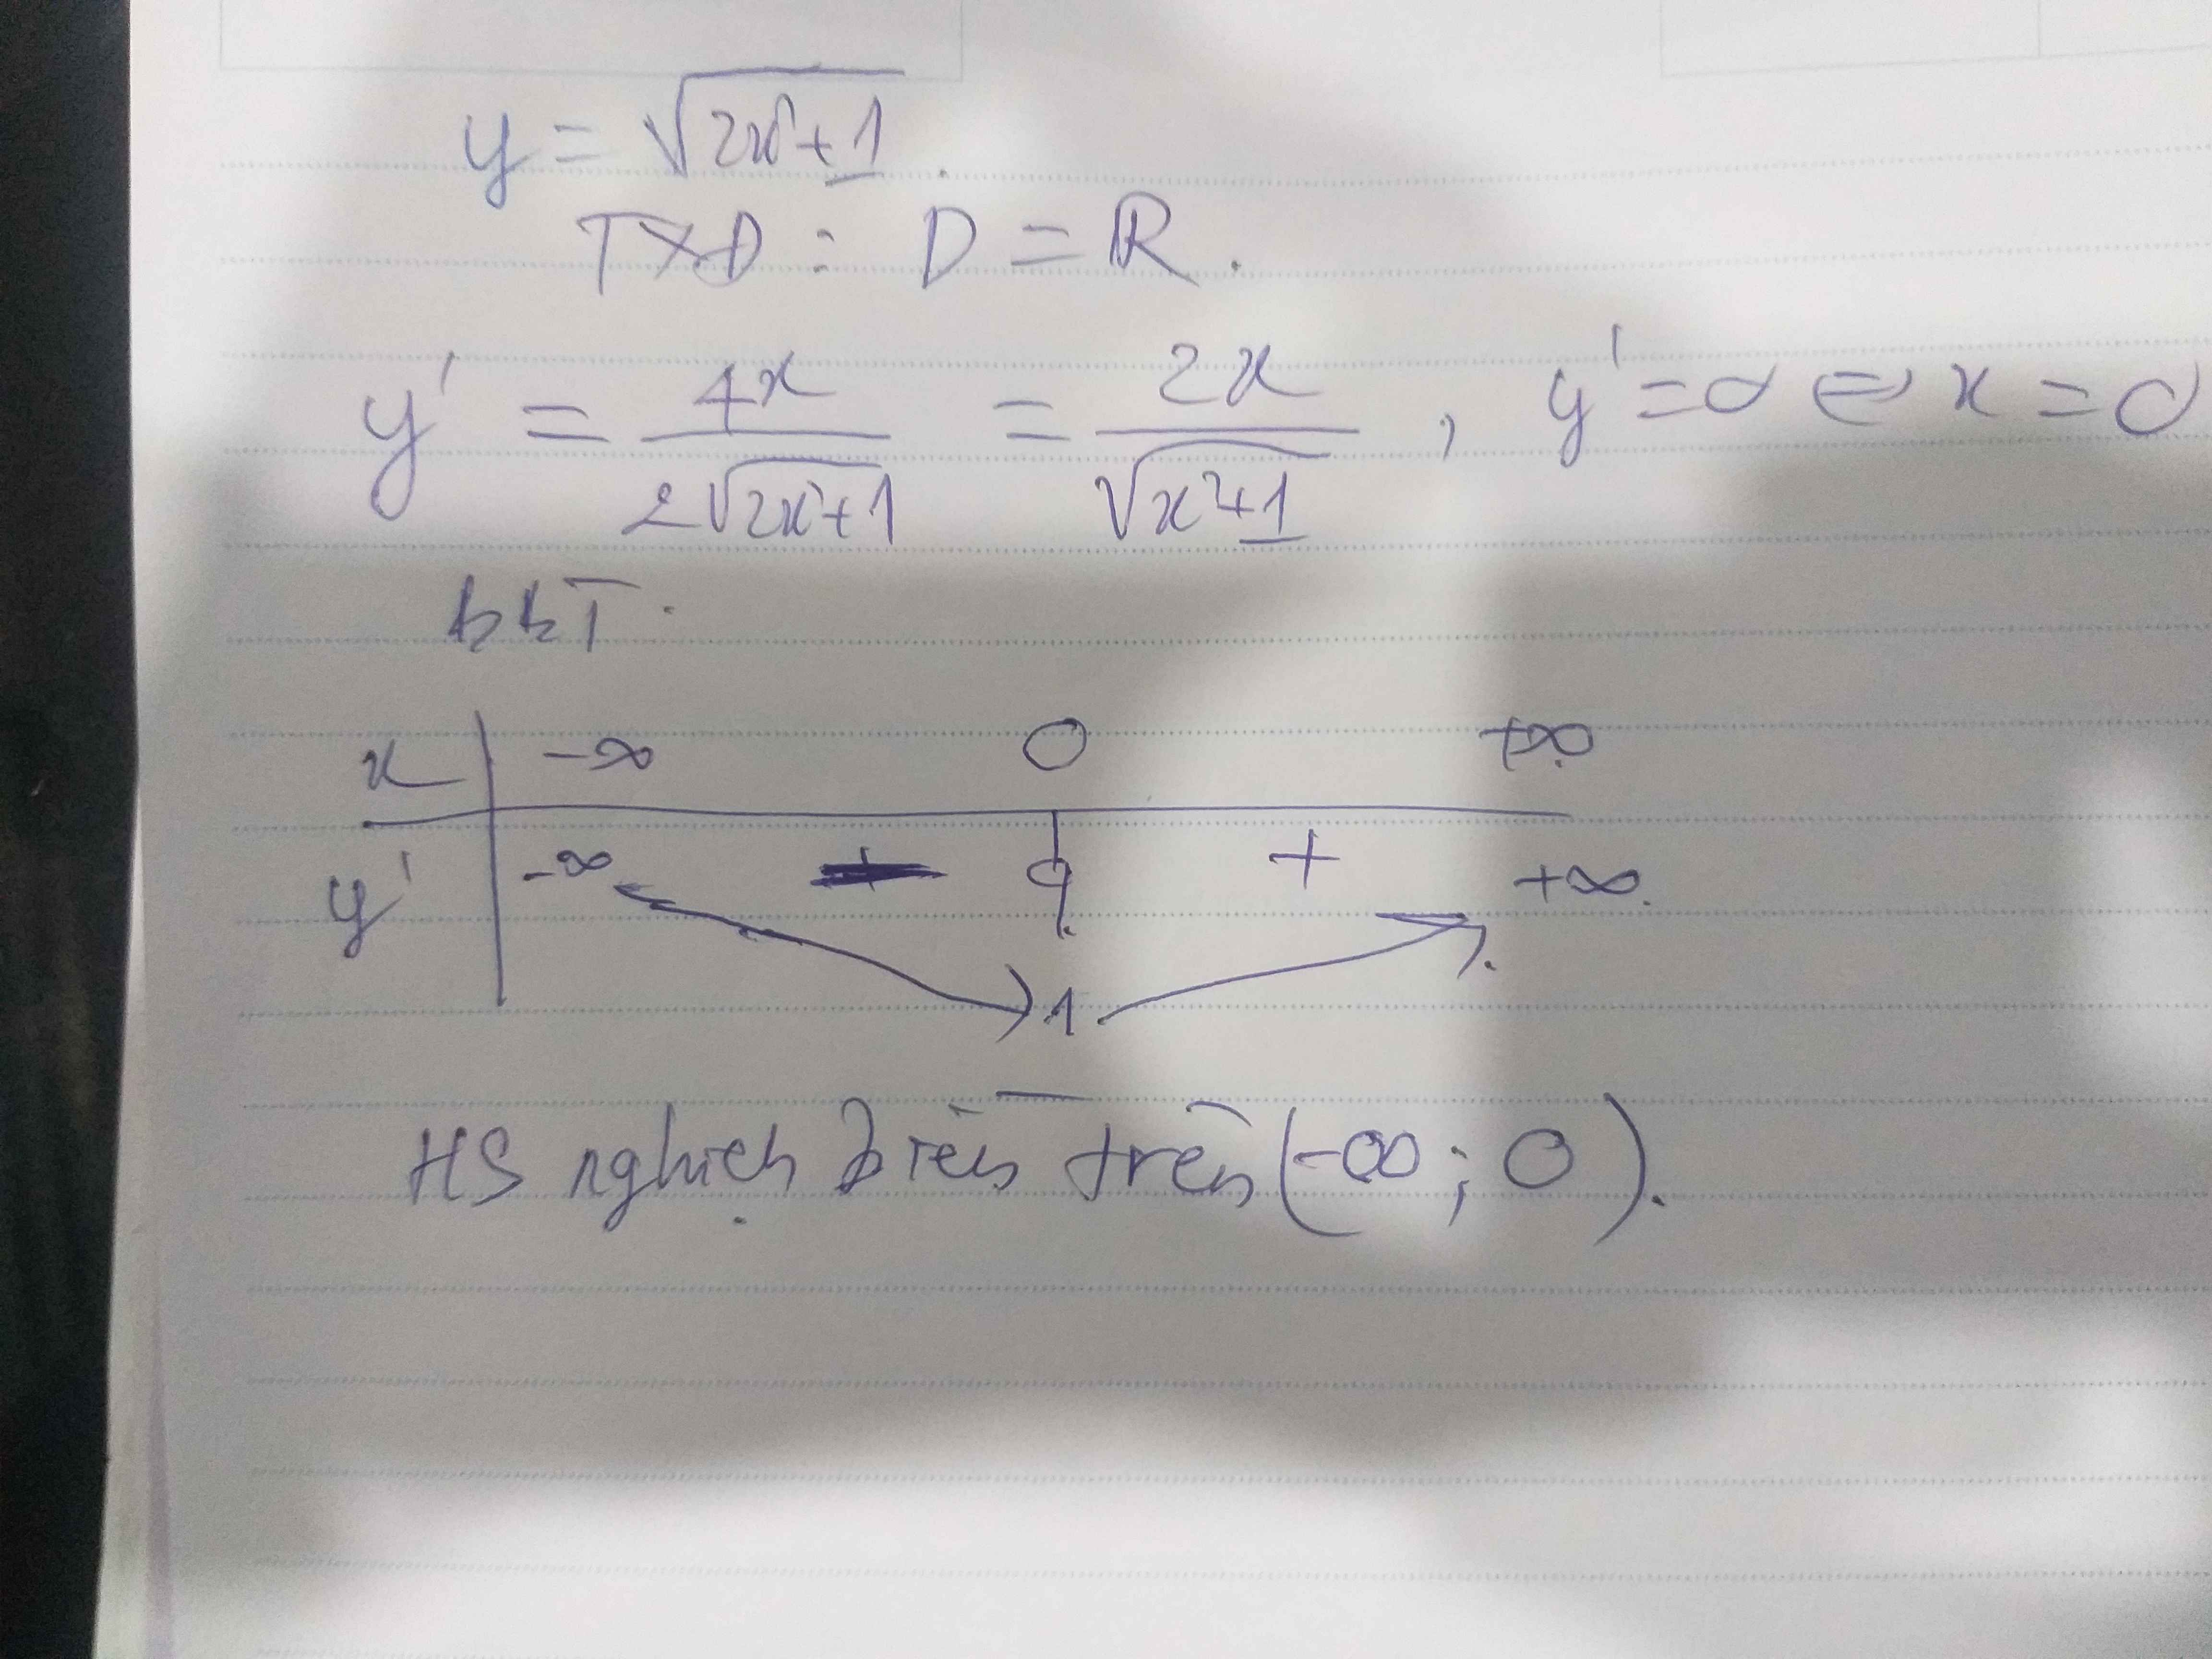 y = √(2x²+1).
TXD : D = R.
y' = 4x / 2√(2x²+1) = 2x / √(x²+1) , y' = 0 ⇔ x = 0
bbT.
x | -∞ 0 +∞
y' | -∞ - 0 + +∞.
1
HS nghịch biến trên (-∞; 0).